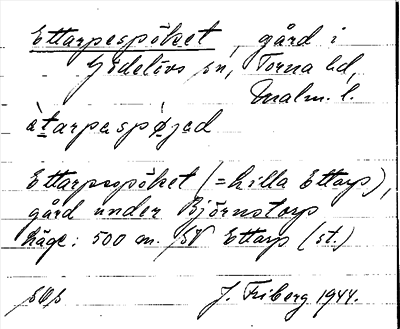 Ettarpespöket, gård i
Gödelövs sn, Torna hd,
Malm. l.
ètarpaspøjed
Ettarpespöket (= Lilla Ettarp),
gård under Björnstorp
Läge: 500 m. SV Ettarp (st.)
J. Friberg 1944.